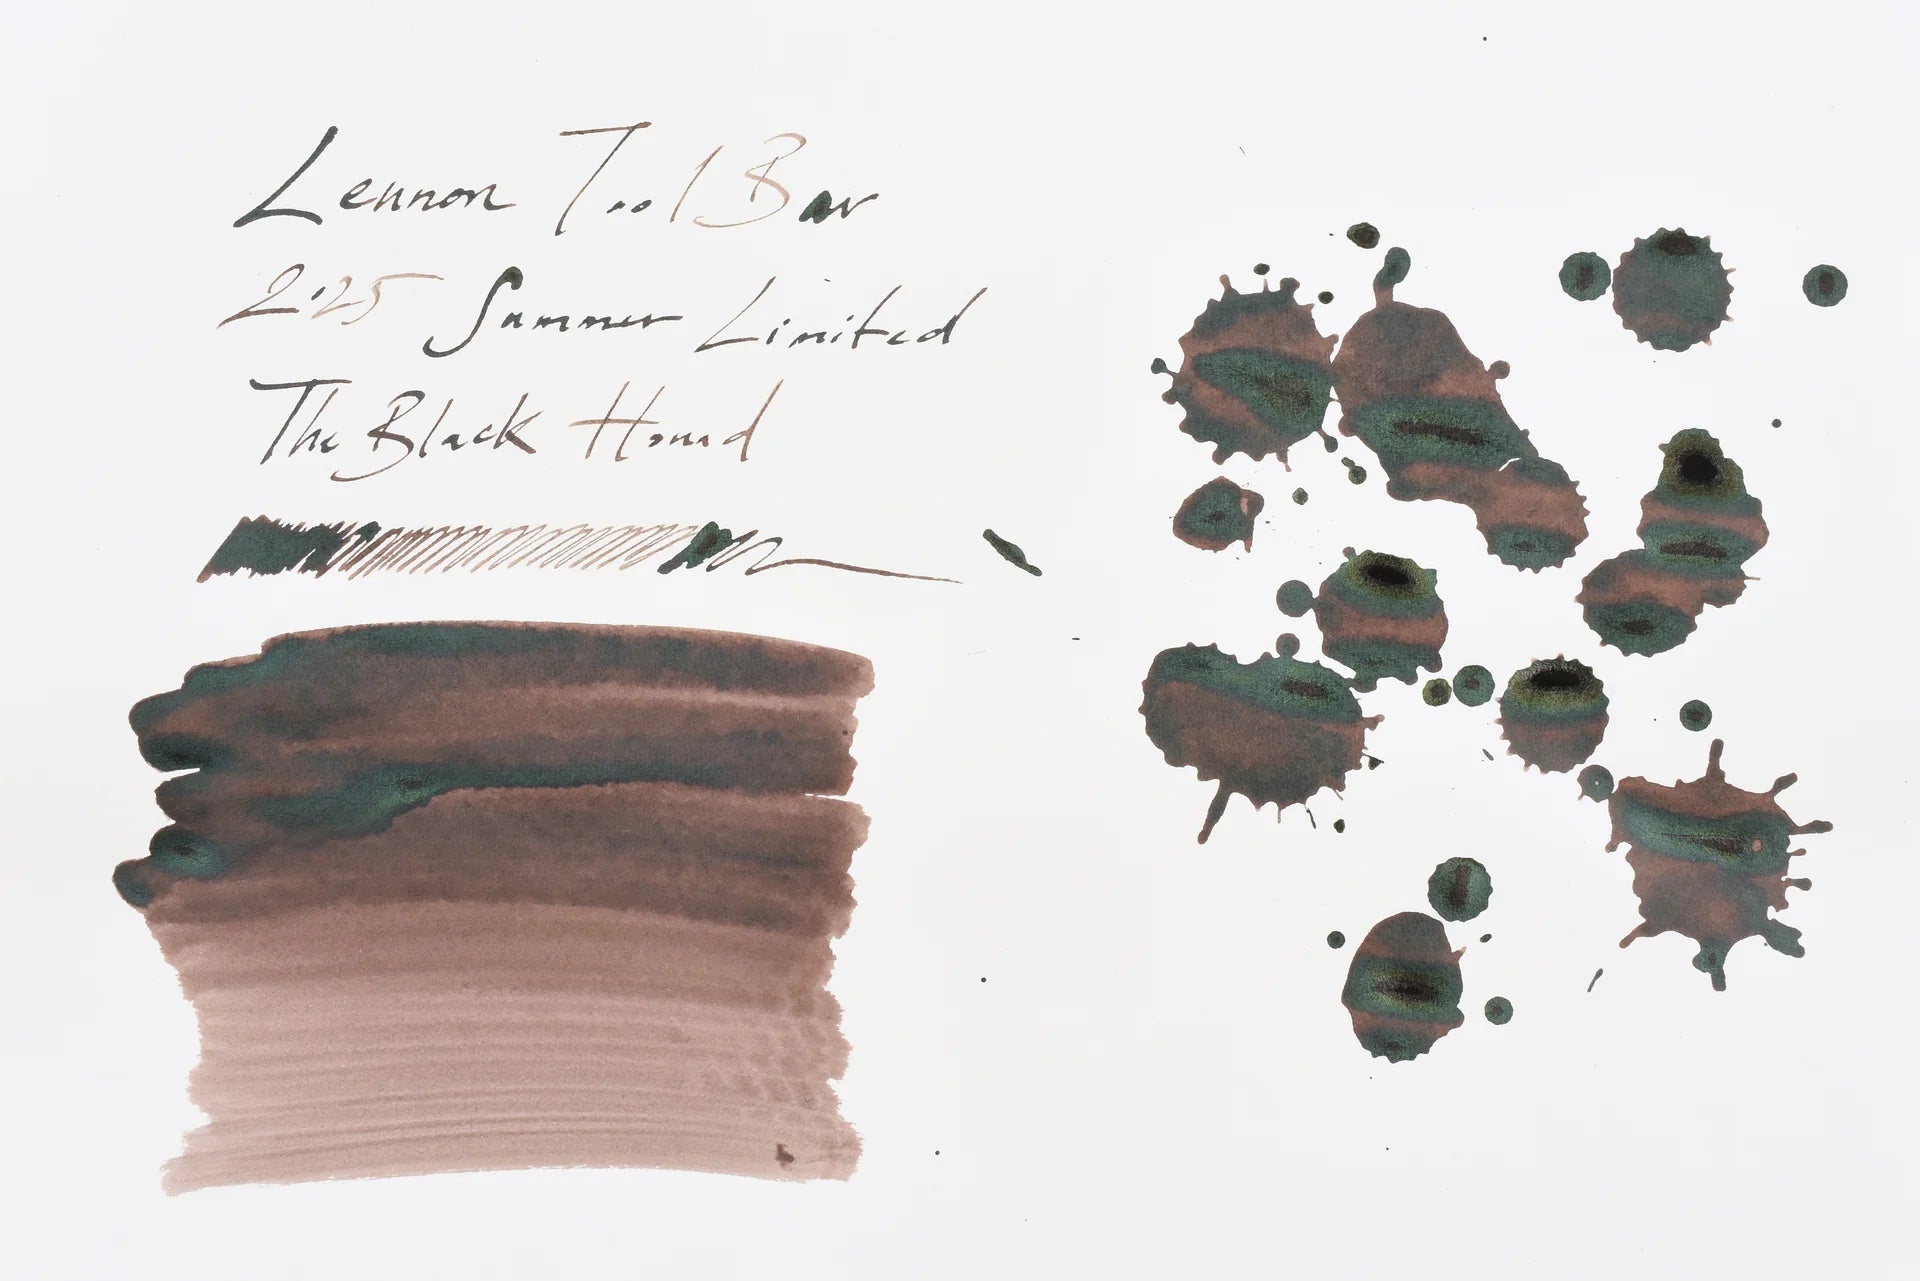 Lennon Tool Bar
2025 Summer Limited
The Black Hound